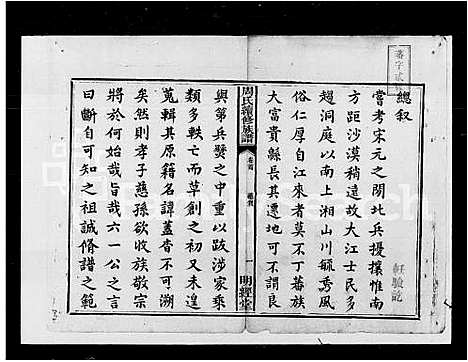 總叙
嘗考宋元之閒北兵擾攘惟南
方距沙漠稍遠故大江士民多
趨洞庭以南上湘山川毓秀風
俗仁厚自江來者莫不丁蕃族
大富貴縣長其遷地可不謂良
周氏續修族譜
卷首
總叙
一
明經堂
與第兵燹之中重以跋涉家乘
類多軼亡而草創之初又未遑
蒐輯其原籍名諱蓋杳不可溯
矣然則孝子慈孫欲收族敬宗
將於何始哉旨哉六一公之言
曰斷自可知之祖誠脩譜之範